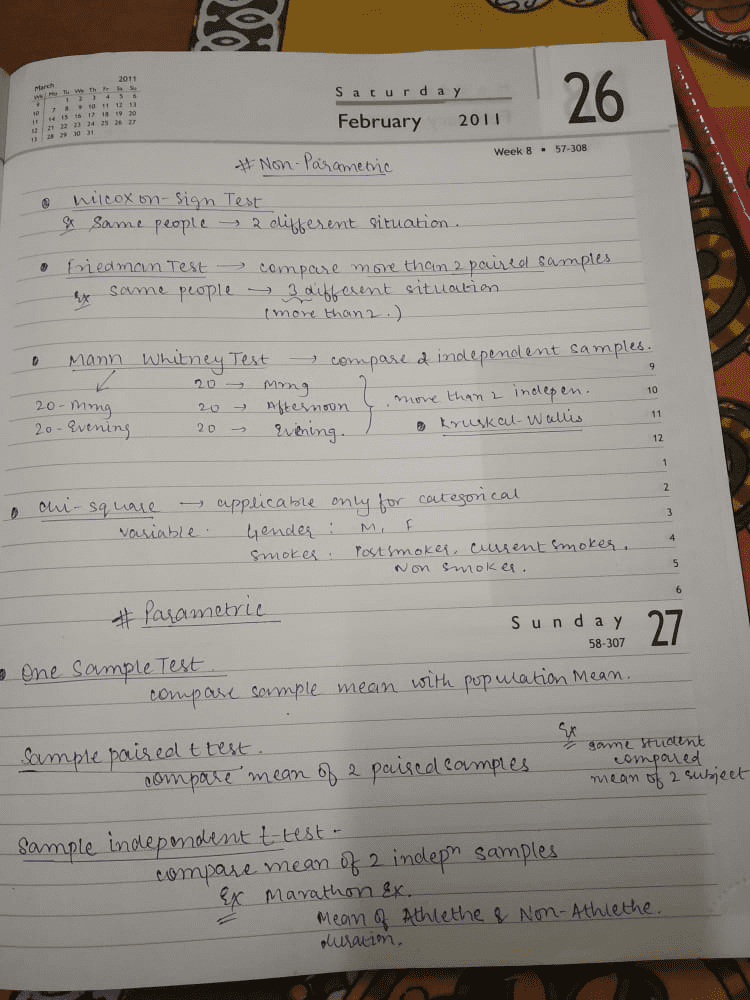 March 2011
Wk Mo Tu We Th Fr Sa Su
9 1 2 3 4 5 6
10 7 8 9 10 11 12 13
11 14 15 16 17 18 19 20
12 21 22 23 24 25 26 27
13 28 29 30 31
Saturday
February 2011
26
Week 8 • 57-308
# Non-Parametric
• Wilcoxon-Sign Test
Ex Same people → 2 different situation.
• Friedman Test → compare more than 2 paired samples
Ex same people → 3 different situation
(more than 2.)
• Mann Whitney Test → compare 2 independent samples.
9
20 → Mrng
20-Mrng 20 → Afternoon } . more than 2 indepen.
10
20-Evening 20 → Evening. • Kruskal-Wallis
11
12
1
• Chi-square → applicable only for categorical
2
variable. Gender: M, F
3
Smokes: Postsmoker, Current smoker,
4
Non smoker.
5
6
# Parametric
Sunday
58-307
27
• One Sample Test.
compare sample mean with population Mean.
Sample paired t test.
compare mean of 2 paired samples
Ex
same student
compared
mean of 2 subject
Sample independent t-test -
compare mean of 2 indepn samples
Ex Marathon Ex.
Mean of Athlethe & Non-Athlethe.
duration.